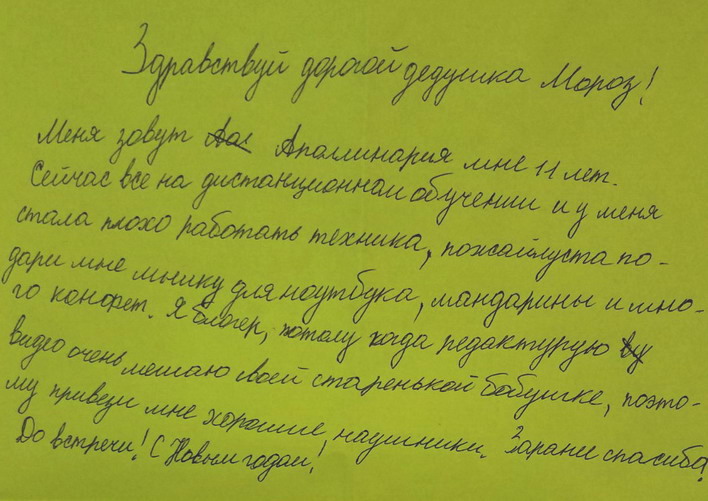 Здравствуй дорогой дедушка Мороз!
Меня зовут Аполлинария мне 11 лет.
Сейчас все на дистанционном обучении и у меня
стала плохо работать техника, пожайлуста по-
дари мне мышку для ноутбука, мандарины и мно-
го конфет. Я блогер, потому когда редактурую
видео очень мешаю своей старенькой бобушке, поэто-
му привези мне хорошие наушники. Зарание спасиба!
До встречи! С Новым годом!